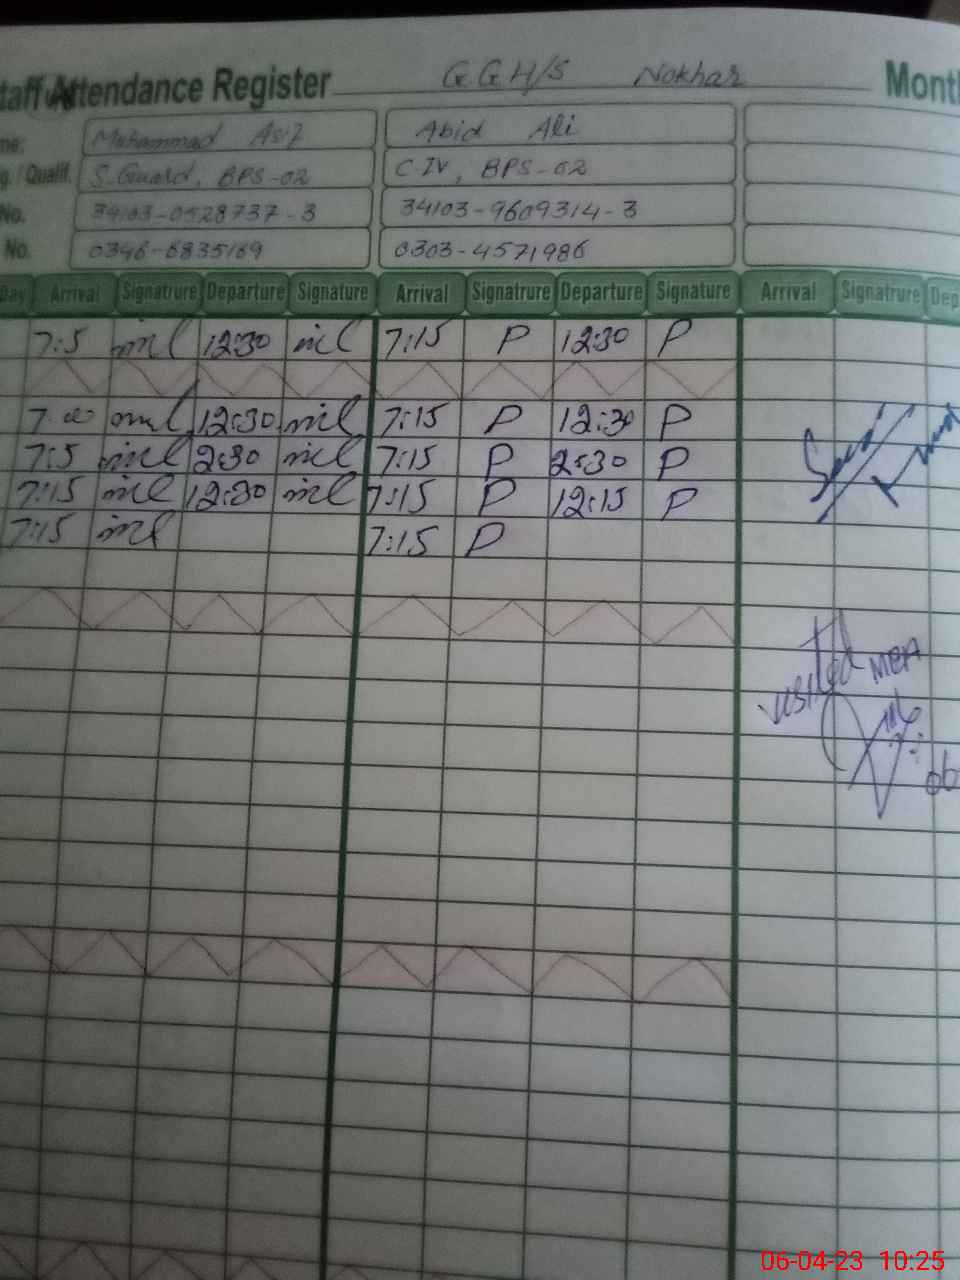 taff Attendance Register GGH/S Nokhar Month
me: Muhammad Asif Abid Ali
g. / Qualif. S.Guard, BPS-02 C-IV, BPS-02
No. 34103-0528737-3 34103-9609314-3
No. 0346-6835169 0303-4571986
Day Arrival Signatrure Departure Signature Arrival Signatrure Departure Signature Arrival Signatrure Dep
7:5 12:30 7:15 P 12:30 P
12:30 7:15 P 12:30 P
7:5 2:30 7:15 P 2:30 P
7:15 12:30 7:15 P 12:15 P
7:15 7:15 P
visited MEA
06-04-23 10:25